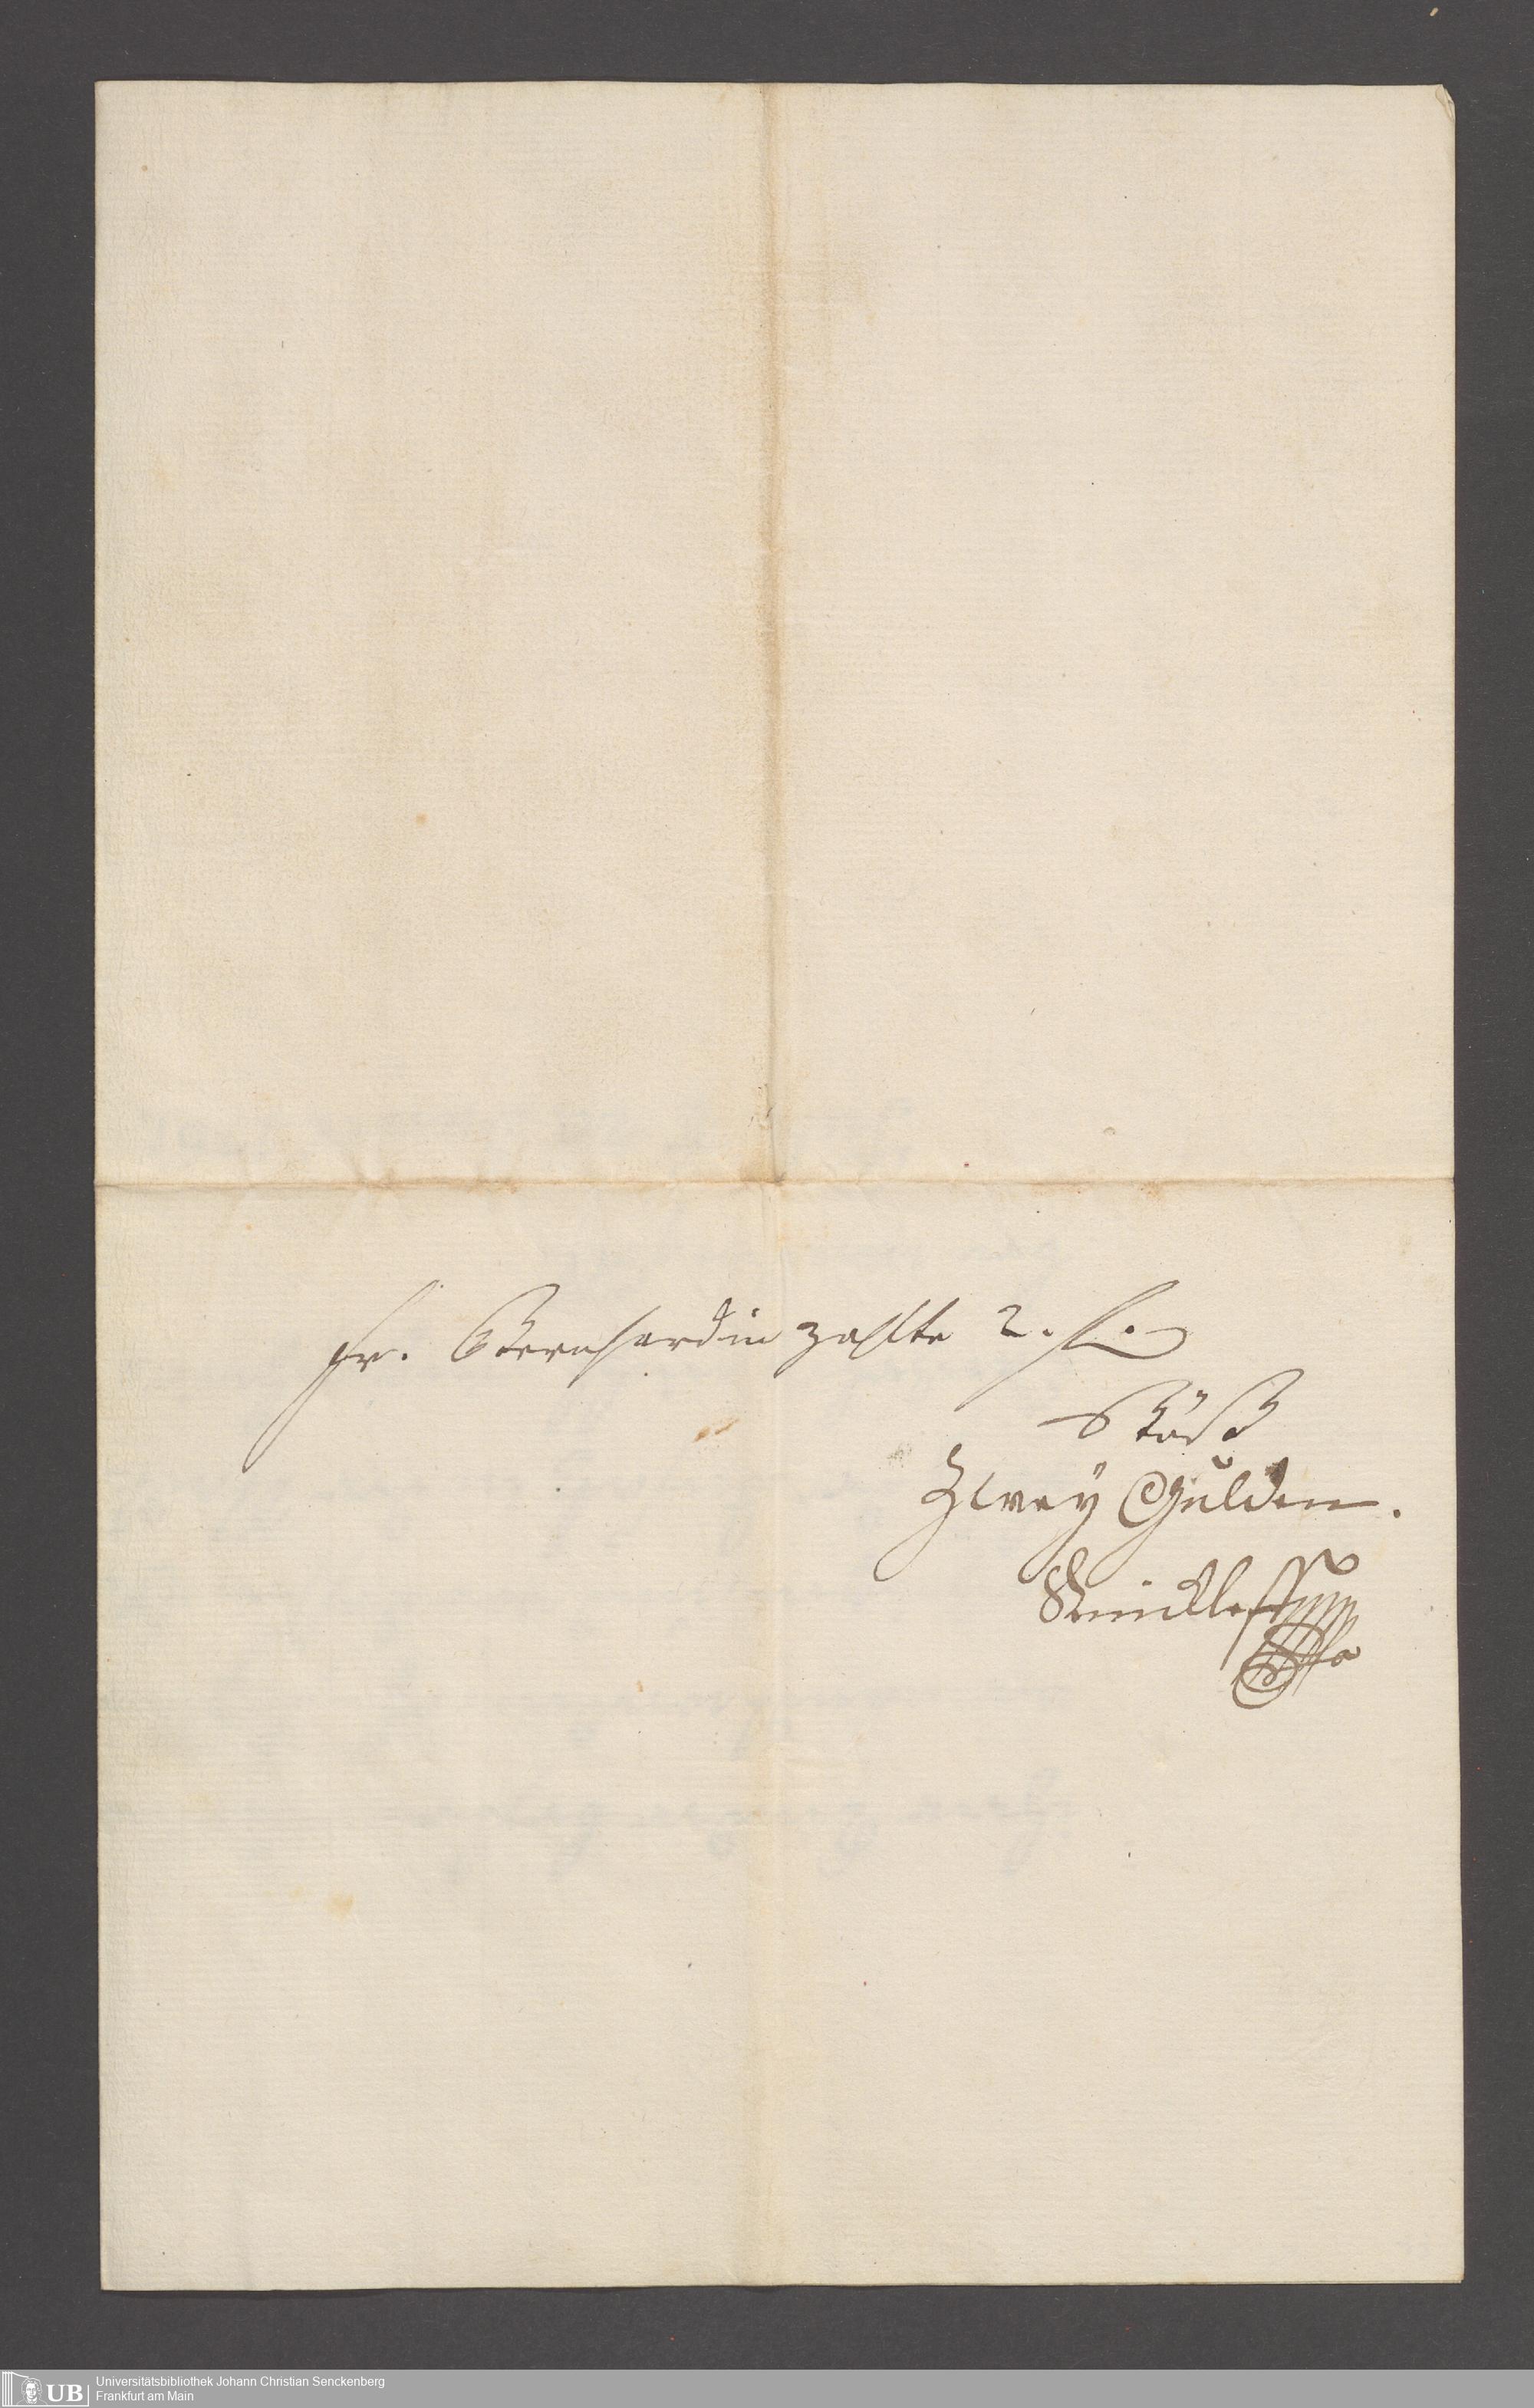 Fr. Bernhardin zahlte 2. fl.
Zwey Gulden.
UB
Universitätsbibliothek Johann Christian Senckenberg
Frankfurt am Main